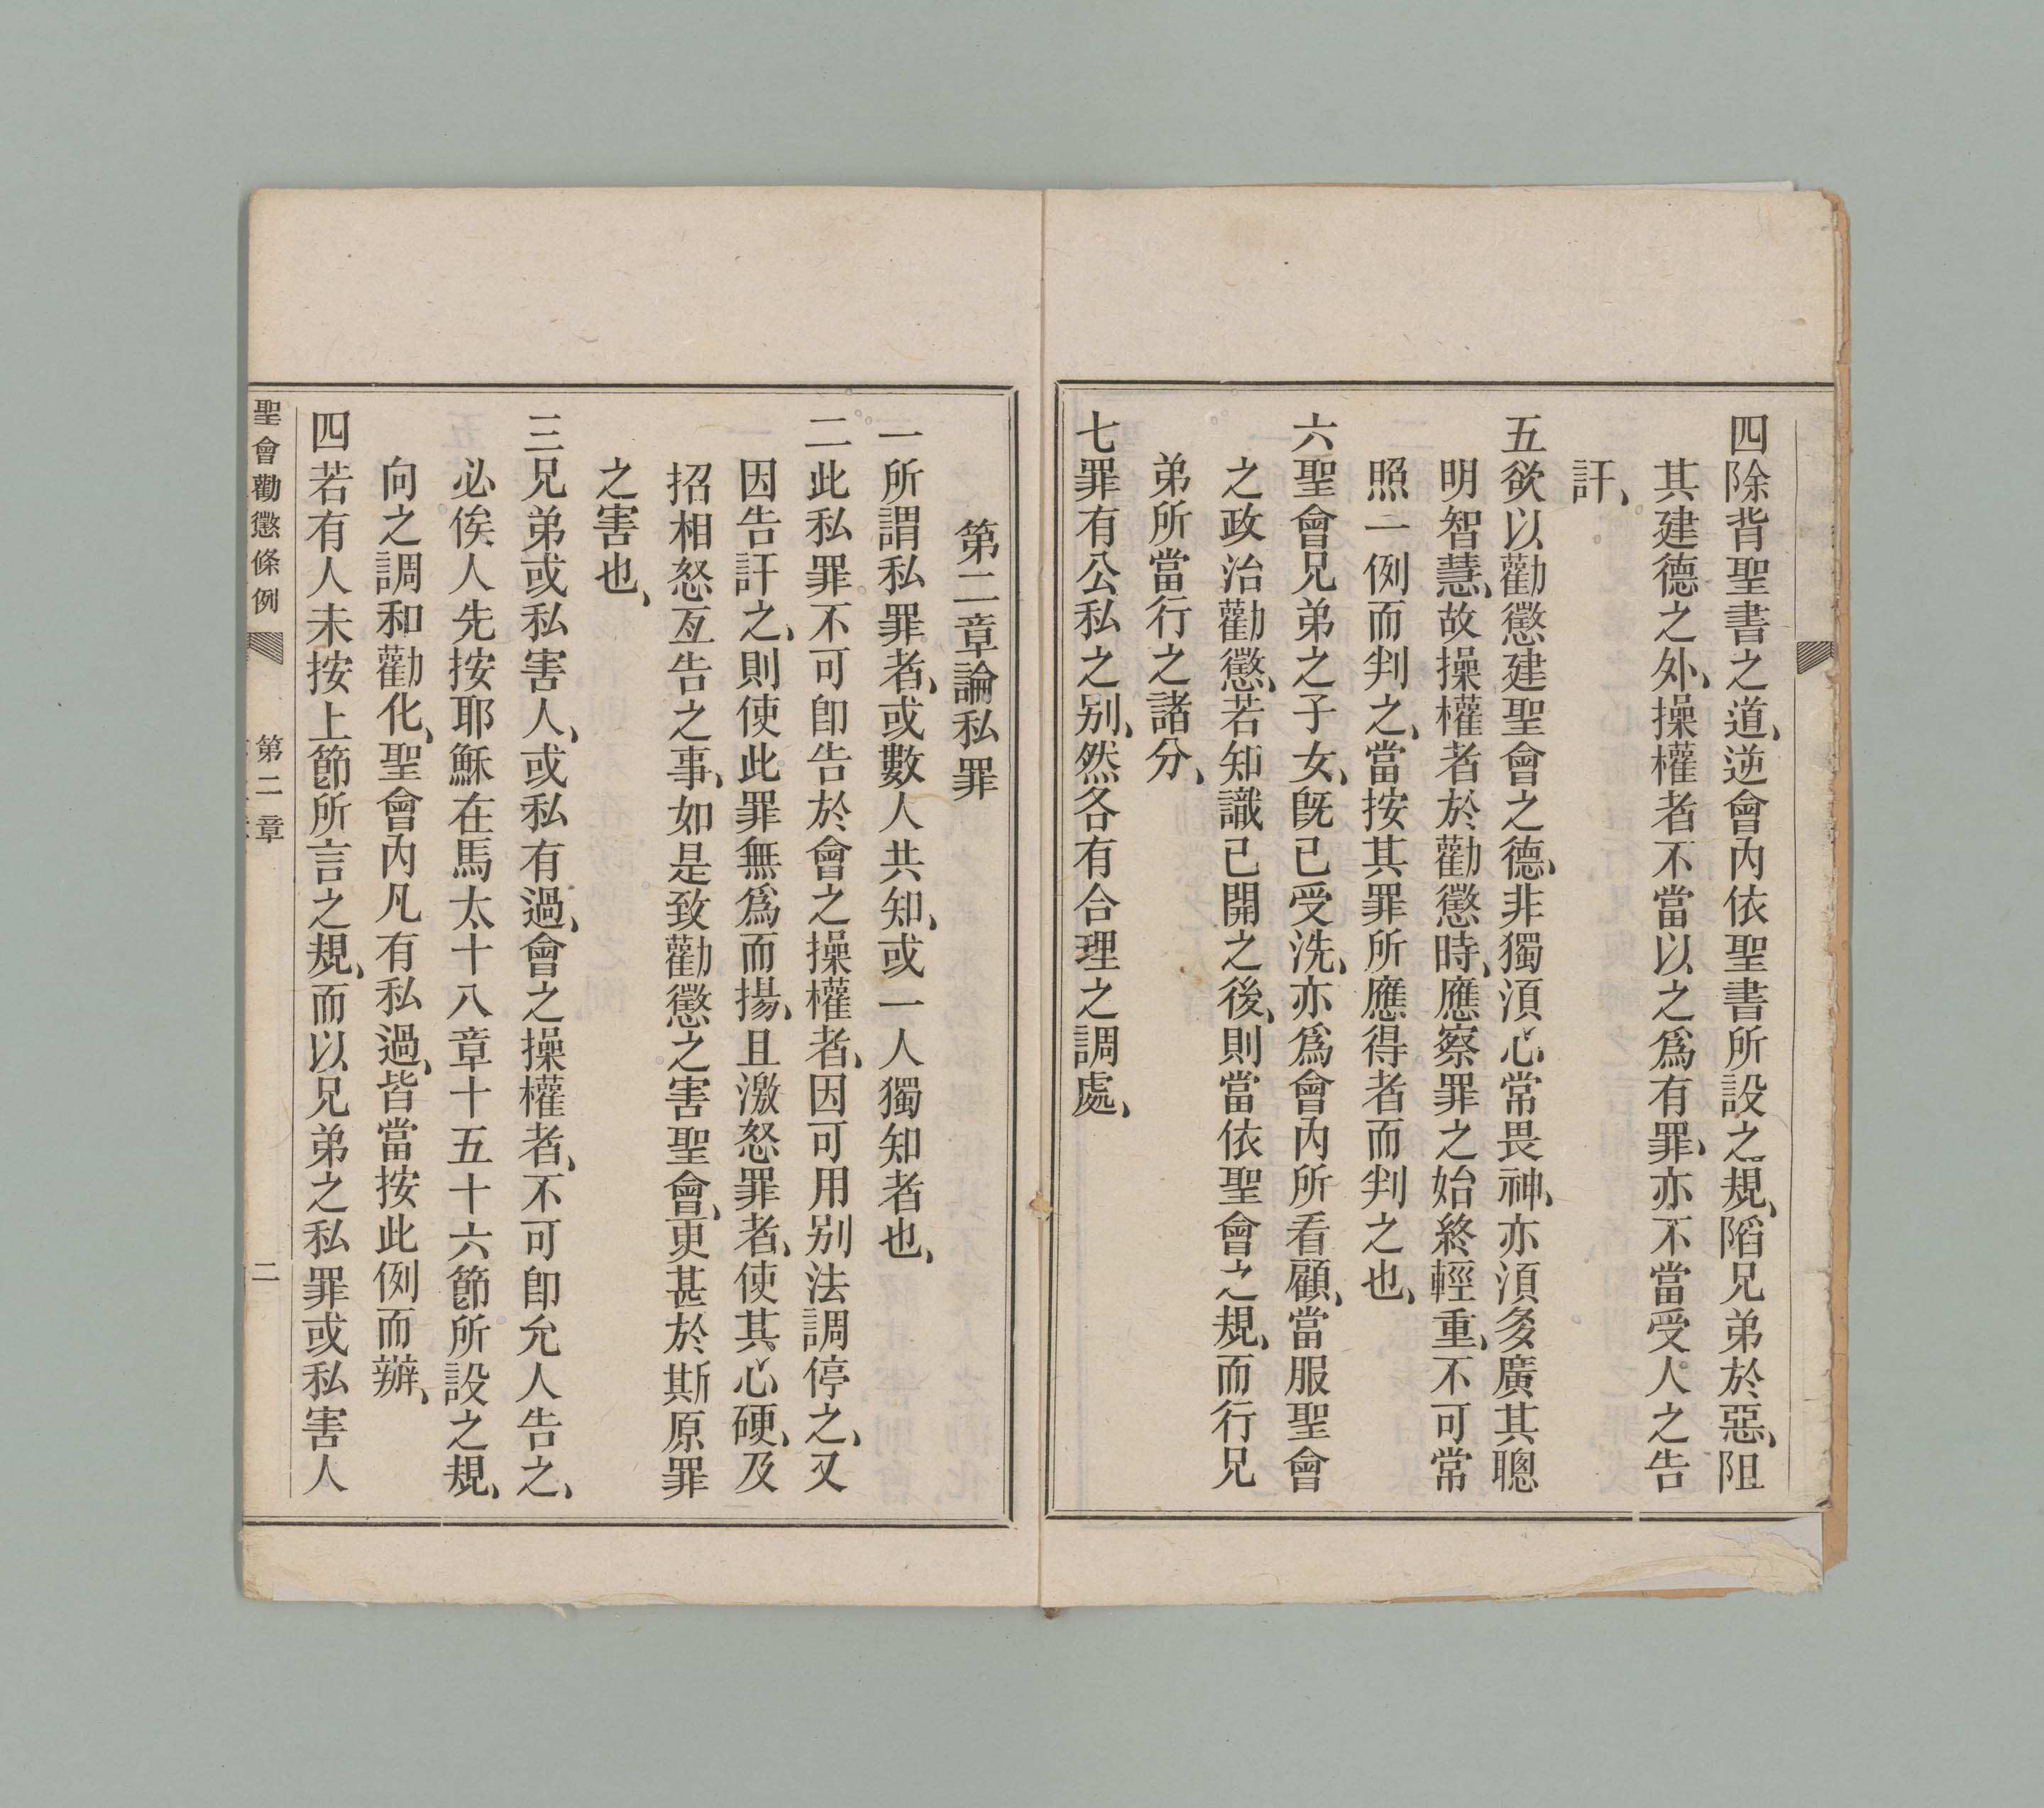 四除背聖書之道、逆會內依聖書所設之規、陷兄弟於惡、阻
其建德之外、操權者不當以之爲有罪、亦不當受人之告
訐、
五欲以勸懲建聖會之德、非獨須心常畏神、亦須多廣其聰
明智慧、故操權者於勸懲時、應察罪之始終輕重、不可常
照一例而判之、當按其罪所應得者而判之也、
六聖會兄弟之子女、旣已受洗、亦爲會內所看顧、當服聖會
之政治勸懲、若知識已開之後、則當依聖會之規、而行兄
弟所當行之諸分、
七罪有公私之别、然各有合理之調處、
第二章論私罪
一所謂私罪者、或數人共知、或一人獨知者也、
二此私罪不可卽告於會之操權者、因可用别法調停之、又
因告訐之、則使此罪無爲而揚、且激怒罪者、使其心硬、及
招相怒互告之事、如是致勸懲之害聖會、更甚於斯原罪
之害也、
三兄弟或私害人、或私有過、會之操權者、不可卽允人告之、
必俟人先按耶穌在馬太十八章十五十六節所設之規、
向之調和勸化、聖會內凡有私過、皆當按此例而辦、
四若有人未按上節所言之規、而以兄弟之私罪或私害人
聖會勸懲條例 第二章 二